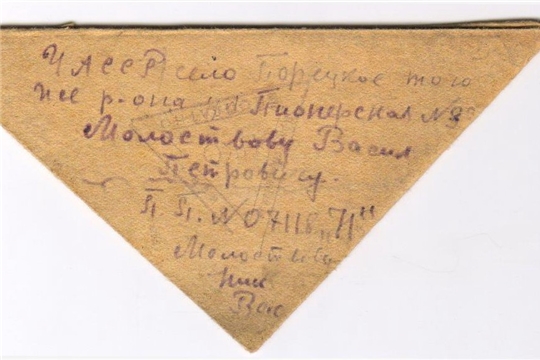 ЧАССР село Порецкое того
же р-она Пионерская №
Молоствову Васил
Петровичу.
П П. № 07116 "Л"
Молоствов
Ник
Вас